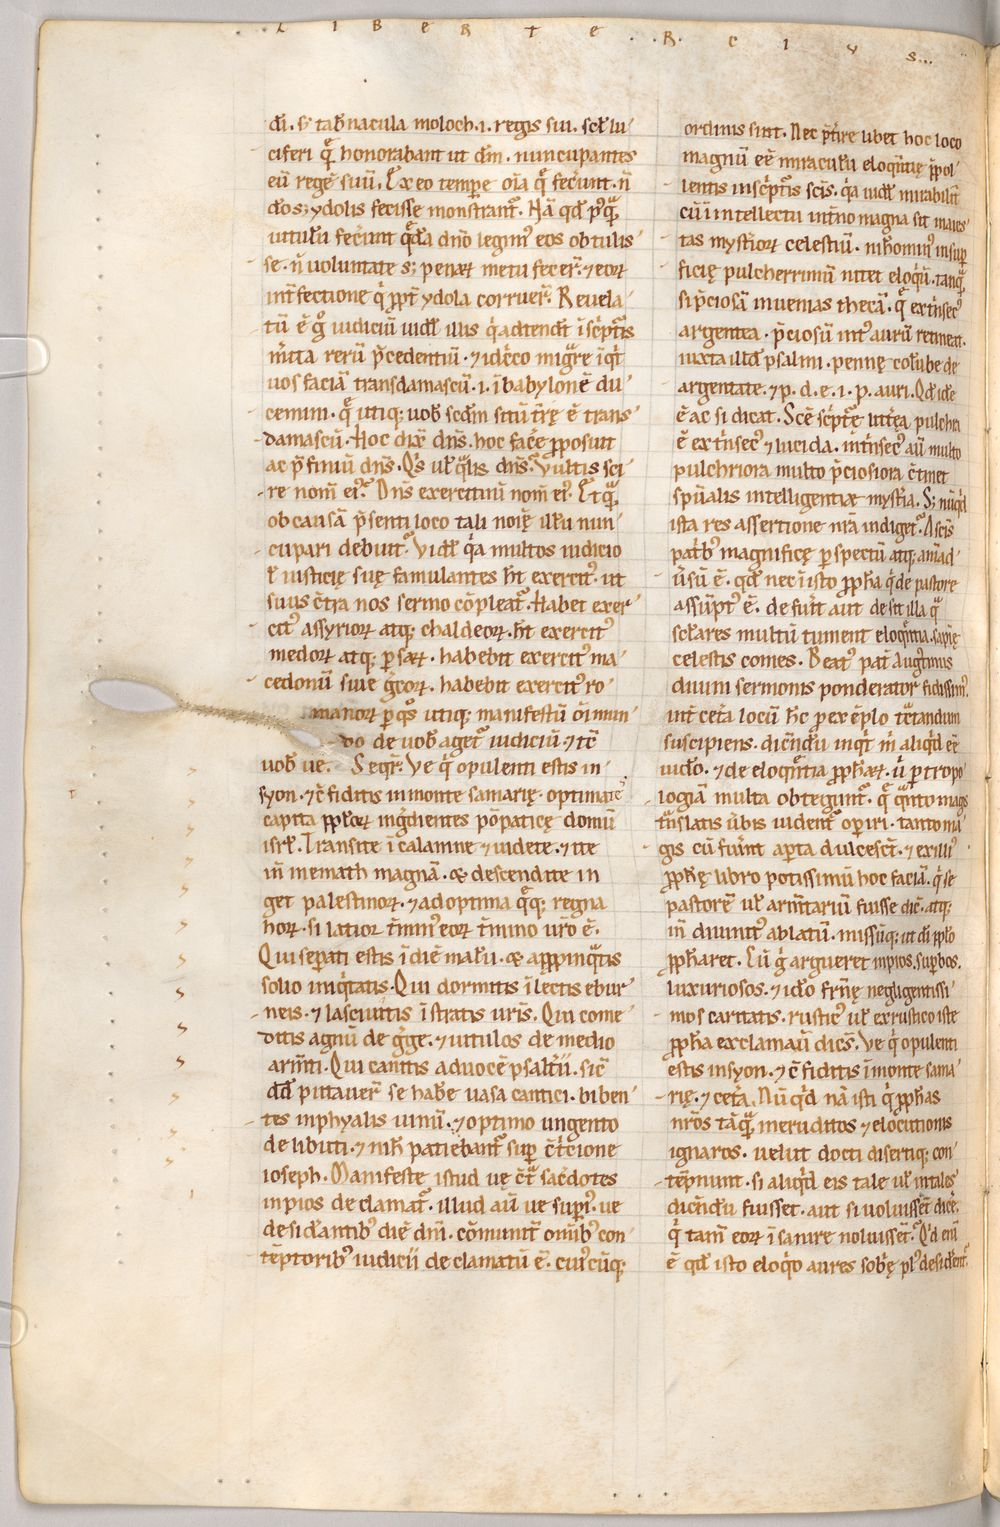 L I B E R T E . . R . C I V S ...
dī. ⁊ tab̄nacula moloch .i. regis sui. scł lu
ciferi q̄ honorabant ut dm̄. nuncupantes
eū regē suū. Ex eo tempe om̄a q̄ fecer̄unt. n̄
do s; ydolis fecisse monstrant᷑. Nā qd̄ pꝰq̄
uitulū fecer̄unt q̄dā dn̄o legimꝰ eos obtulis
se. n̄ uoluntate s; penaꝝ metu fecer̄. ⁊ eoꝝ
int̄fectione q̄ ppt̄ ydola corruer̄. Reuela
tū ē ḡ iudiciū uidel̄ illis q̄ adtendt̄ ī sc̄ptis
m̄ita rerū p̄cedentiū. ⁊ idc̄co mig̃re īq̄t
uos faciā transdamascū .i. ī babylonē du
cemini. q̄ utiq; uob̄ scdm̄ sitū tr̄ę ē trans
damascū. Hoc dix̄ dn̄s. hoc fac̄e pposuit
ac p̄finiū dn̄s. Qͥs ul̄ q̄lis dn̄s. Vultis sci
re nom̄ eiꝰ. Dn̄s exercituū nom̄ eiꝰ. Et q̄
ob causā p̄senti loco tali noīe illū nun
cupari debuit. Videl̄ q̄a multos iudicio
ł iusticię suę famulantes ht̄ exercitꝰ. ut
suus c̄tra nos sermo cōpleat᷑. Habet exer
citꝰ assyrioꝝ atq; chaldeoꝝ. ht̄ exercitꝰ
medoꝝ atq; psaꝝ. habebit exercitꝰ ma
cedonū siue ḡcoꝝ. habebit exercitꝰ ro
manoꝝ p q̄s utiq; manifestū oī mun
do de uob̄ aget᷑ iudiciū. ⁊ tc̄
uob̄ ue. Seqr̄. Ve q̄ opulenti estis in
syon. ⁊ c̄fiditis in monte samarię. optimates
capita pploꝝ ing̃dientes pōpaticę domū
isrł. Transite ī calamne ⁊ uidete. ⁊ ite
in̄ in emath magnā. & descendite in
get palestinoꝝ. ⁊ ad optima q̄q; regna
hoꝝ. si latior t̄min̄ꝰ eoꝝ t̄mino ur̄o ē.
Qui sepati estis ī diē malū. & appinq̄tis
solio iniq̄tatis. Qui dormitis ī lectis ebur
neis. ⁊ lasciuitis ī stratis ur̄is. Qui come
ditis agnū de g̃ge. ⁊ uitulos de medio
arm̄ti. Qui canitis ad uocē psaltꝰii. sic̄
dd̄ putauer̄ se hab̄e uasa cantici. biben
tes in phyalis uinū. ⁊ optimo ungento
delibuti. ⁊ nih̄ patiebant᷑ sup c̄tc̄ione
ioseph. Manifeste istud uę c̄t̄ sac̄dotes
inpios declamat᷑. illud au̅ ue supiꝰ. ue
desid̄antibꝰ diē dn̄i. cōmunit᷑ om̄ibꝰ con
tēptoribꝰ iudicii declamatū ē. cuiꝰcūq;
ordinis sint. Nec pt̄ire libet hoc loco
magnū ēē miraculū eloq̄ntię p̄pol
lentis in sc̄ptis scīs. q̄a uidel̄ mirabilit̄
cū in intellectu int̄no magna sit maies
tas mysticoꝝ celestiū. nih̄ominꝰ in sup
ficię pulcherrimū nitet eloq̄ū. tanq̄
si p̄ciosā inuenias thecā. q̄ ext̄insecꝰ
argentea. p̄ciosū intꝰ aurū retineat.
iuxta illd̄ psalmi. pennę colūbe de
argentate. ⁊ p. d. e. i. p. auri. Qd̄ idē
ē ac si dicat. Sc̄e sc̄ptę litt̄ea pulchra
ē ext̄insecꝰ ⁊ lucida. int̄insecꝰ au̅ multo
pulchriora multo p̄ciosiora c̄tinet
spūalis intelligentiæ myst̄ia. S; nūq̄d
ista res assertione nr̄a indiget᷑. A scīs
patbꝰ magnificę pspectū atq; amad
ūsū ē. qd̄ nec ī isto ppha q̄ de pastore
assūptꝰ ē. de fuit aut desit illa q̄
sclares multū tument eloq̄ntia. sapię
celestis comes. Beatꝰ pat̄ augꝰtinus
diuini sermonis ponderator fidissimꝰ.
int̄ cetā locū hc̄ p exēplo tc̄tandum
suscipiens. dicēdū inqt̄ m̄ aliq̄d ēē
uido. ⁊ de eloq̄ntia pphaꝝ. ū p tropo
logiā multa obtegunt᷑. q̄ q̄nto magis
t̄nslatis ūbis uident᷑ opiri. tanto ma
gis cū fuint apta dulcesct̄. ⁊ ex illiꝰ
pphę libro potissimū hoc faciā. q̄ se
pastorē ul̄ arm̄tariū fuisse dic̄. atq;
in̄ diuinitꝰ ablatū. missūq; ut dī pplo
ppharet. Cū g̃ argueret inpios. supbos.
luxuriosos. ⁊ ido frn̄ę negligentissi
mos caritatis. rusticꝰ ul̄ ex rustico iste
ppha exclamau̅ dicēs. Ve q̄ opulenti
estis in syon. ⁊ c̄fiditis ī monte sama
rię. ⁊ cetā. Nūq̄d nā isti q̄ pphas
nr̄os tāq̄ ineruditos ⁊ elocutionis
ignaros. uelut docti disertiq; con
tēpnunt. si aliq̄d eis tale ul̄ in tales
dicēdū fuisset. aut si uoluissēt dicē.
q̄ tam̄ eoꝝ ī sanire noluissēt. Qͥd eni̅
ē qd̄ isto eloq̄o aures sobę plꝰ desidēnt᷑.